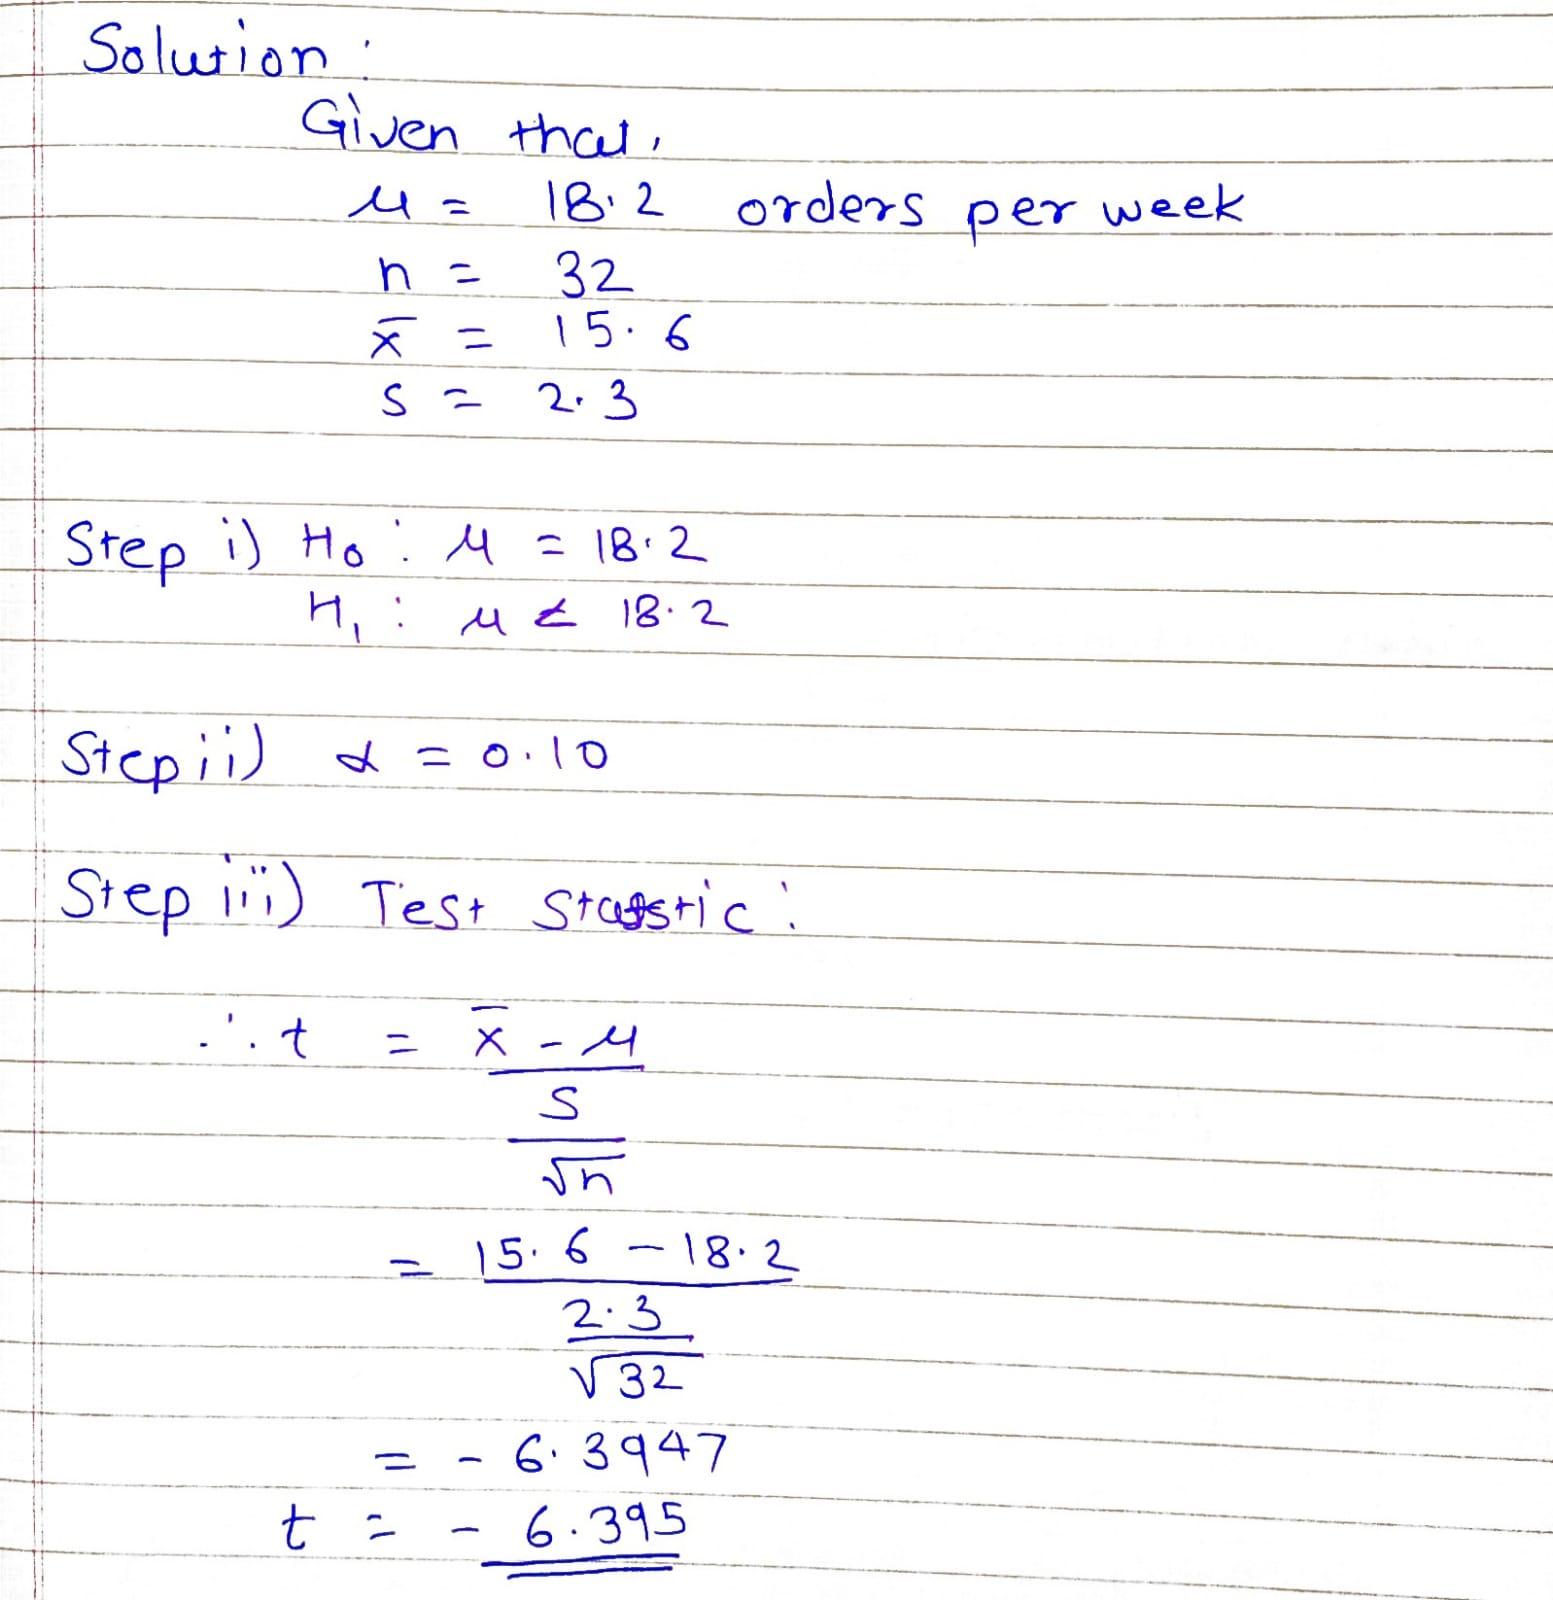 Solution :
Given that,
μ = 18.2 orders per week
n = 32
x̄ = 15.6
s = 2.3
Step i) H₀ : μ = 18.2
H₁ : μ < 18.2
Step ii) α = 0.10
Step iii) Test Statstic :
∴ t = x̄ - μ
s
√n
= 15.6 - 18.2
2.3
√32
= - 6.3947
t = - 6.395